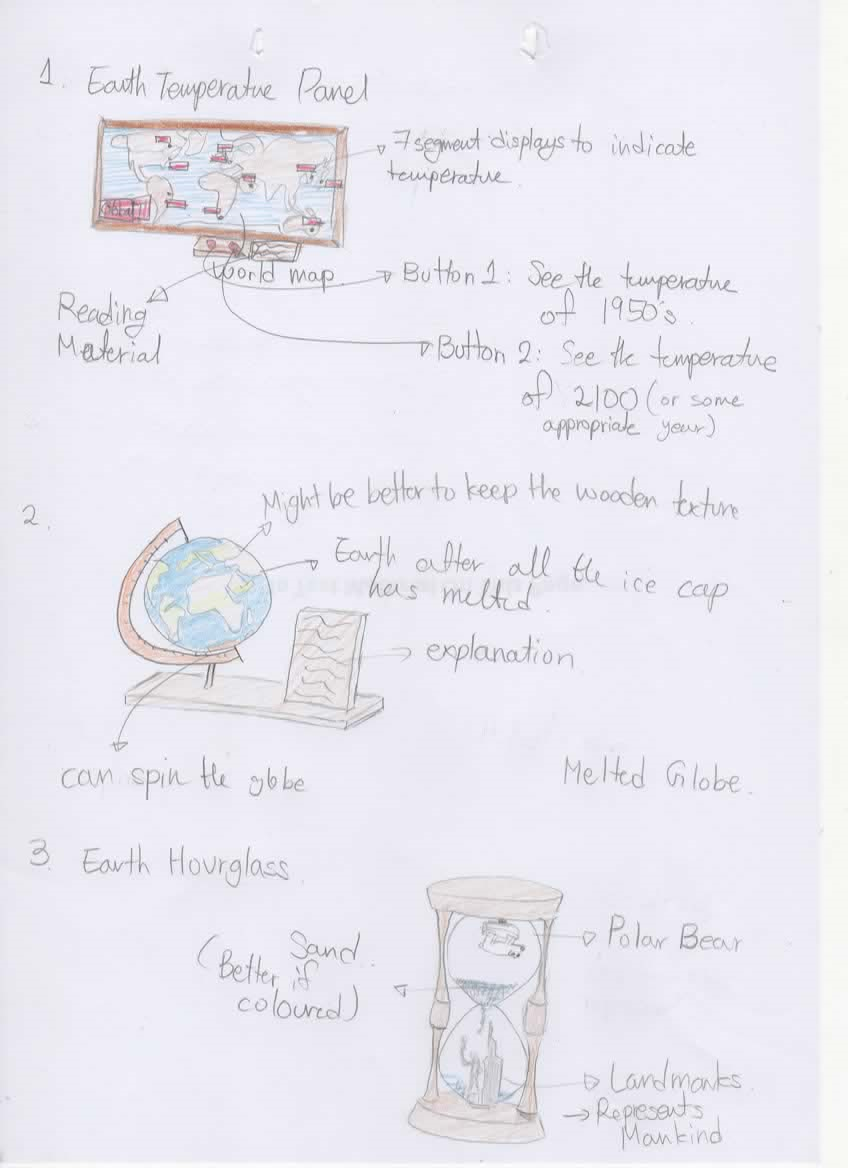 1. Earth Temperature Panel
7 segment displays to indicate
temperature.
World map
Reading
Material
Button 1: See the temperature
of 1950's.
Button 2: See the temperature
of 2100 (or some
appropriate year)
2.
Might be better to keep the wooden texture
Earth after all the ice cap
has melted.
explanation
can spin the globe
Melted Globe.
3. Earth Hourglass.
Sand.
(Better if
coloured)
Polar Bear
Landmarks.
→ Represents
Mankind